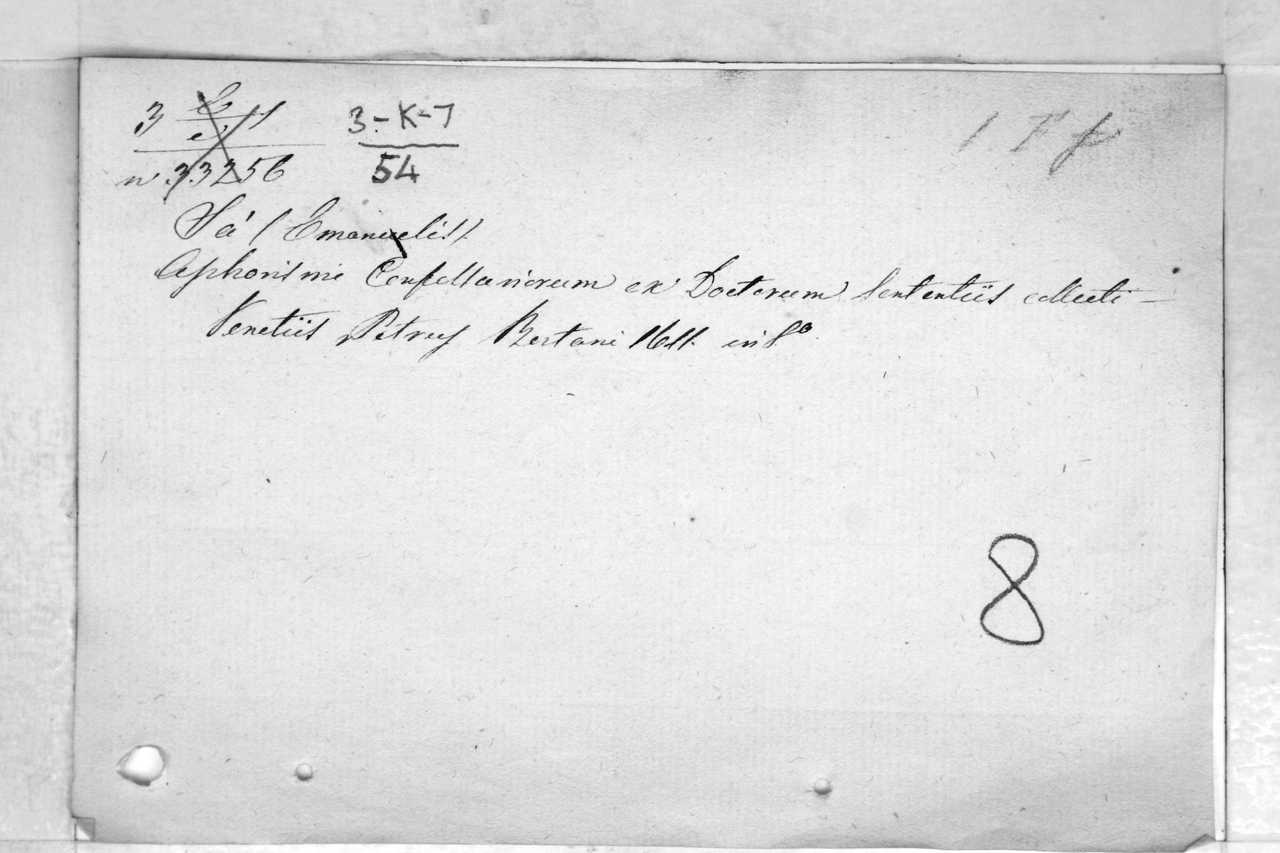 3 3-K-7
n. 33256 54
Sá (Emanuelis).
Aphorismi Confessariorum ex Doctorum Sententiis collecti —
Venetiis Petrus Bertani 1611. in 8º
8